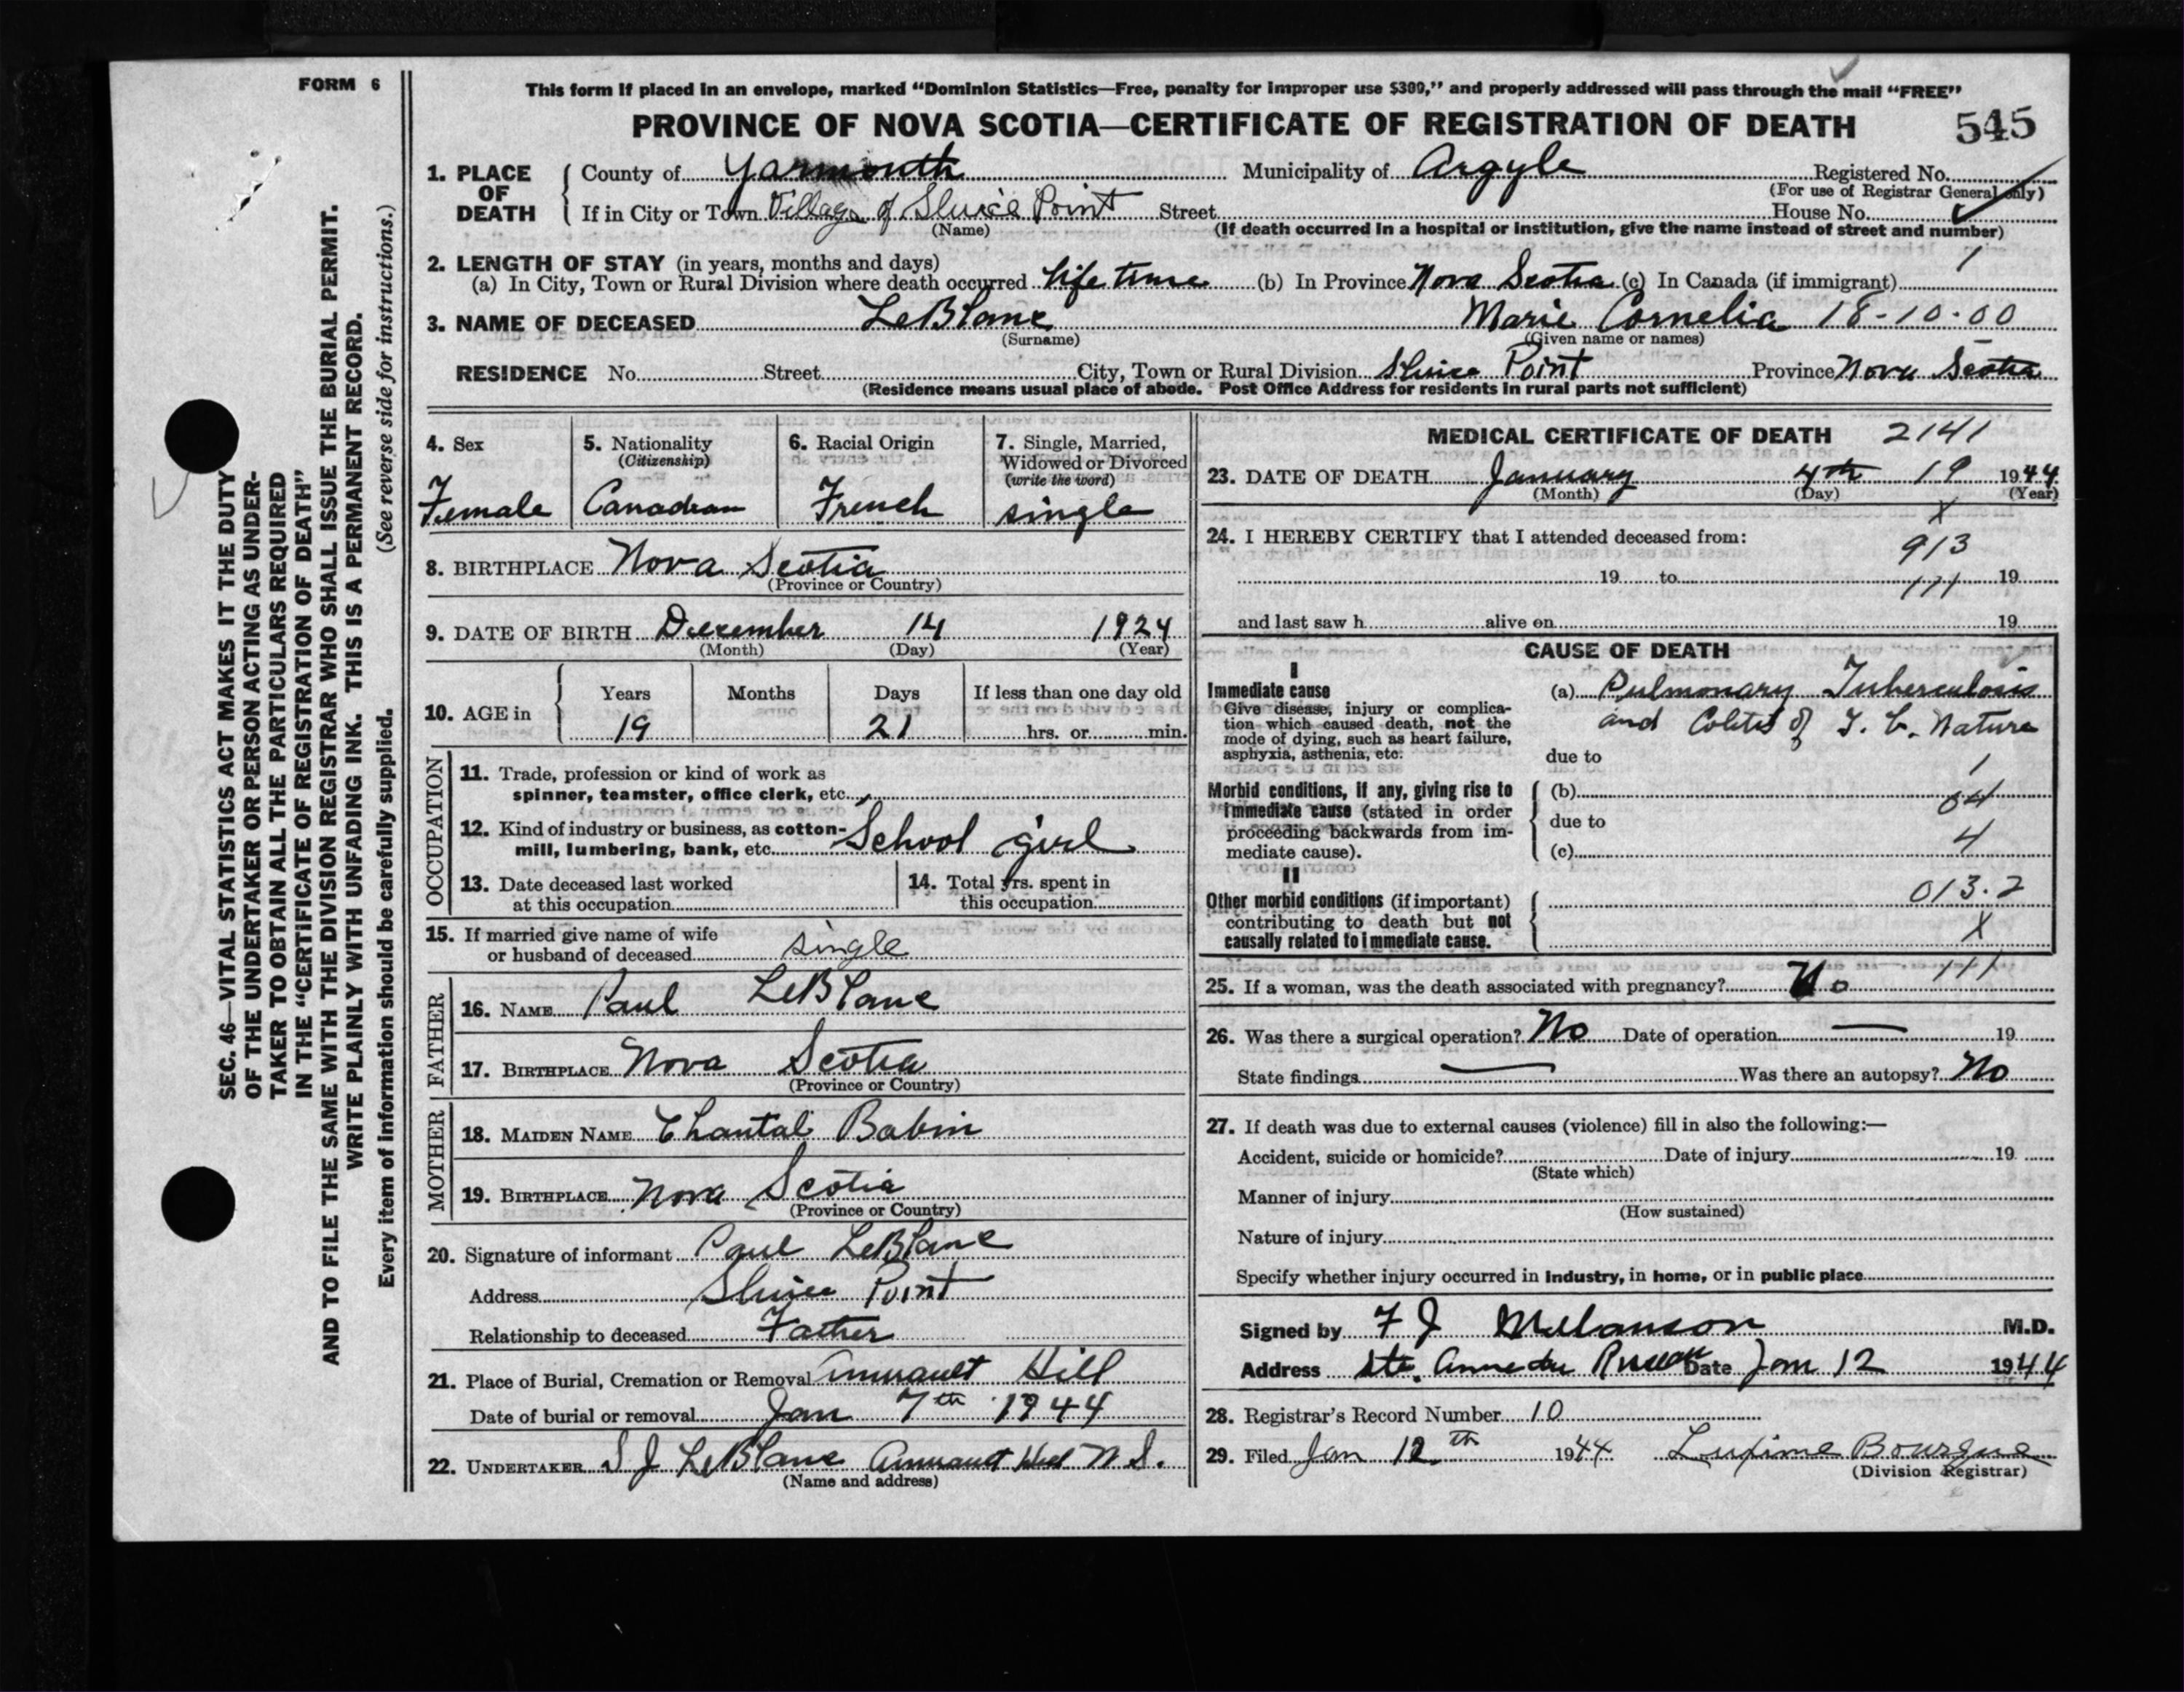 FORM 6
This form if placed in an envelope, marked “Dominion Statistics—Free, penalty for improper use $300,” and properly addressed will pass through the mail “FREE”
PROVINCE OF NOVA SCOTIA—CERTIFICATE OF REGISTRATION OF DEATH 545
1. PLACE OF DEATH
County of Yarmouth Municipality of Argyle Registered No.
(For use of Registrar General only)
If in City or Town Village of Sluice Point Street House No.
(Name) (If death occurred in a hospital or institution, give the name instead of street and number)
2. LENGTH OF STAY (in years, months and days) 1
(a) In City, Town or Rural Division where death occurred life time (b) In Province Nova Scotia (c) In Canada (if immigrant)
3. NAME OF DECEASED LeBlanc Marie Cornelia 18-10-00
(Surname) (Given name or names)
RESIDENCE No. Street City, Town or Rural Division Sluice Point Province Nova Scotia
(Residence means usual place of abode. Post Office Address for residents in rural parts not sufficient)
4. Sex
Female
5. Nationality
(Citizenship)
Canadian
6. Racial Origin
French
7. Single, Married,
Widowed or Divorced
(write the word)
single
8. BIRTHPLACE Nova Scotia
(Province or Country)
9. DATE OF BIRTH December 14 1924
(Month) (Day) (Year)
10. AGE in
Years Months Days If less than one day old
19 21 hrs. or min.
OCCUPATION
11. Trade, profession or kind of work as
spinner, teamster, office clerk, etc.
12. Kind of industry or business, as cotton-
mill, lumbering, bank, etc. School girl
13. Date deceased last worked
at this occupation
14. Total yrs. spent in
this occupation
15. If married give name of wife
or husband of deceased single
FATHER
16. NAME Paul LeBlanc
17. BIRTHPLACE Nova Scotia
(Province or Country)
MOTHER
18. MAIDEN NAME Chantal Babin
19. BIRTHPLACE Nova Scotia
(Province or Country)
20. Signature of informant Paul LeBlanc
Address Sluice Point
Relationship to deceased Father
21. Place of Burial, Cremation or Removal Amirault Hill
Date of burial or removal Jan 7th 1944
22. UNDERTAKER S J LeBlanc Amirault Hill N S.
(Name and address)
MEDICAL CERTIFICATE OF DEATH 2141
23. DATE OF DEATH January 4th 19 1944
(Month) (Day) (Year)
X
24. I HEREBY CERTIFY that I attended deceased from:
913
19 to 111 19
and last saw h alive on 19
CAUSE OF DEATH
I
Immediate cause
Give disease, injury or complica-
tion which caused death, not the
mode of dying, such as heart failure,
asphyxia, asthenia, etc.
(a) Pulmonary Tuberculosis
and Colitis of T. b. Nature
due to
1
Morbid conditions, if any, giving rise to
immediate cause (stated in order
proceeding backwards from im-
mediate cause).
(b) 04
due to
(c) 4
II
Other morbid conditions (if important)
contributing to death but not
causally related to immediate cause.
013.2
X
111
25. If a woman, was the death associated with pregnancy? No
26. Was there a surgical operation? No Date of operation — 19
State findings — Was there an autopsy? No
27. If death was due to external causes (violence) fill in also the following:—
Accident, suicide or homicide? Date of injury 19
(State which)
Manner of injury
(How sustained)
Nature of injury
Specify whether injury occurred in industry, in home, or in public place
Signed by F J Melanson M.D.
Address Ste. Anne du Ruisseau Date Jan 12 1944
28. Registrar's Record Number 10
29. Filed Jan 12th 1944 Bourque
(Division Registrar)
SEC. 46—VITAL STATISTICS ACT MAKES IT THE DUTY
OF THE UNDERTAKER OR PERSON ACTING AS UNDER-
TAKER TO OBTAIN ALL THE PARTICULARS REQUIRED
IN THE “CERTIFICATE OF REGISTRATION OF DEATH”
AND TO FILE THE SAME WITH THE DIVISION REGISTRAR WHO SHALL ISSUE THE BURIAL PERMIT.
WRITE PLAINLY WITH UNFADING INK. THIS IS A PERMANENT RECORD.
Every item of information should be carefully supplied. (See reverse side for instructions.)